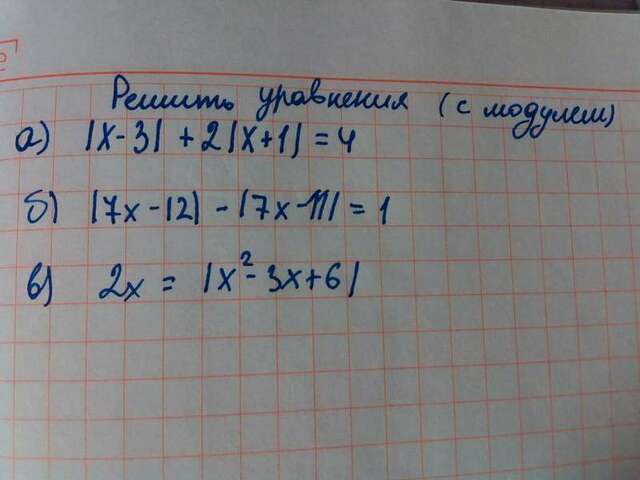 Решить уравнения (с модулем)
а) |x-3| + 2|x+1| = 4
б) |7x-12| - |7x-11| = 1
в) 2x = |x²-3x+6|